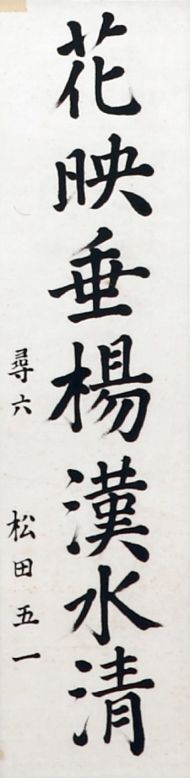 花映垂楊漢水清
尋六 松田五一